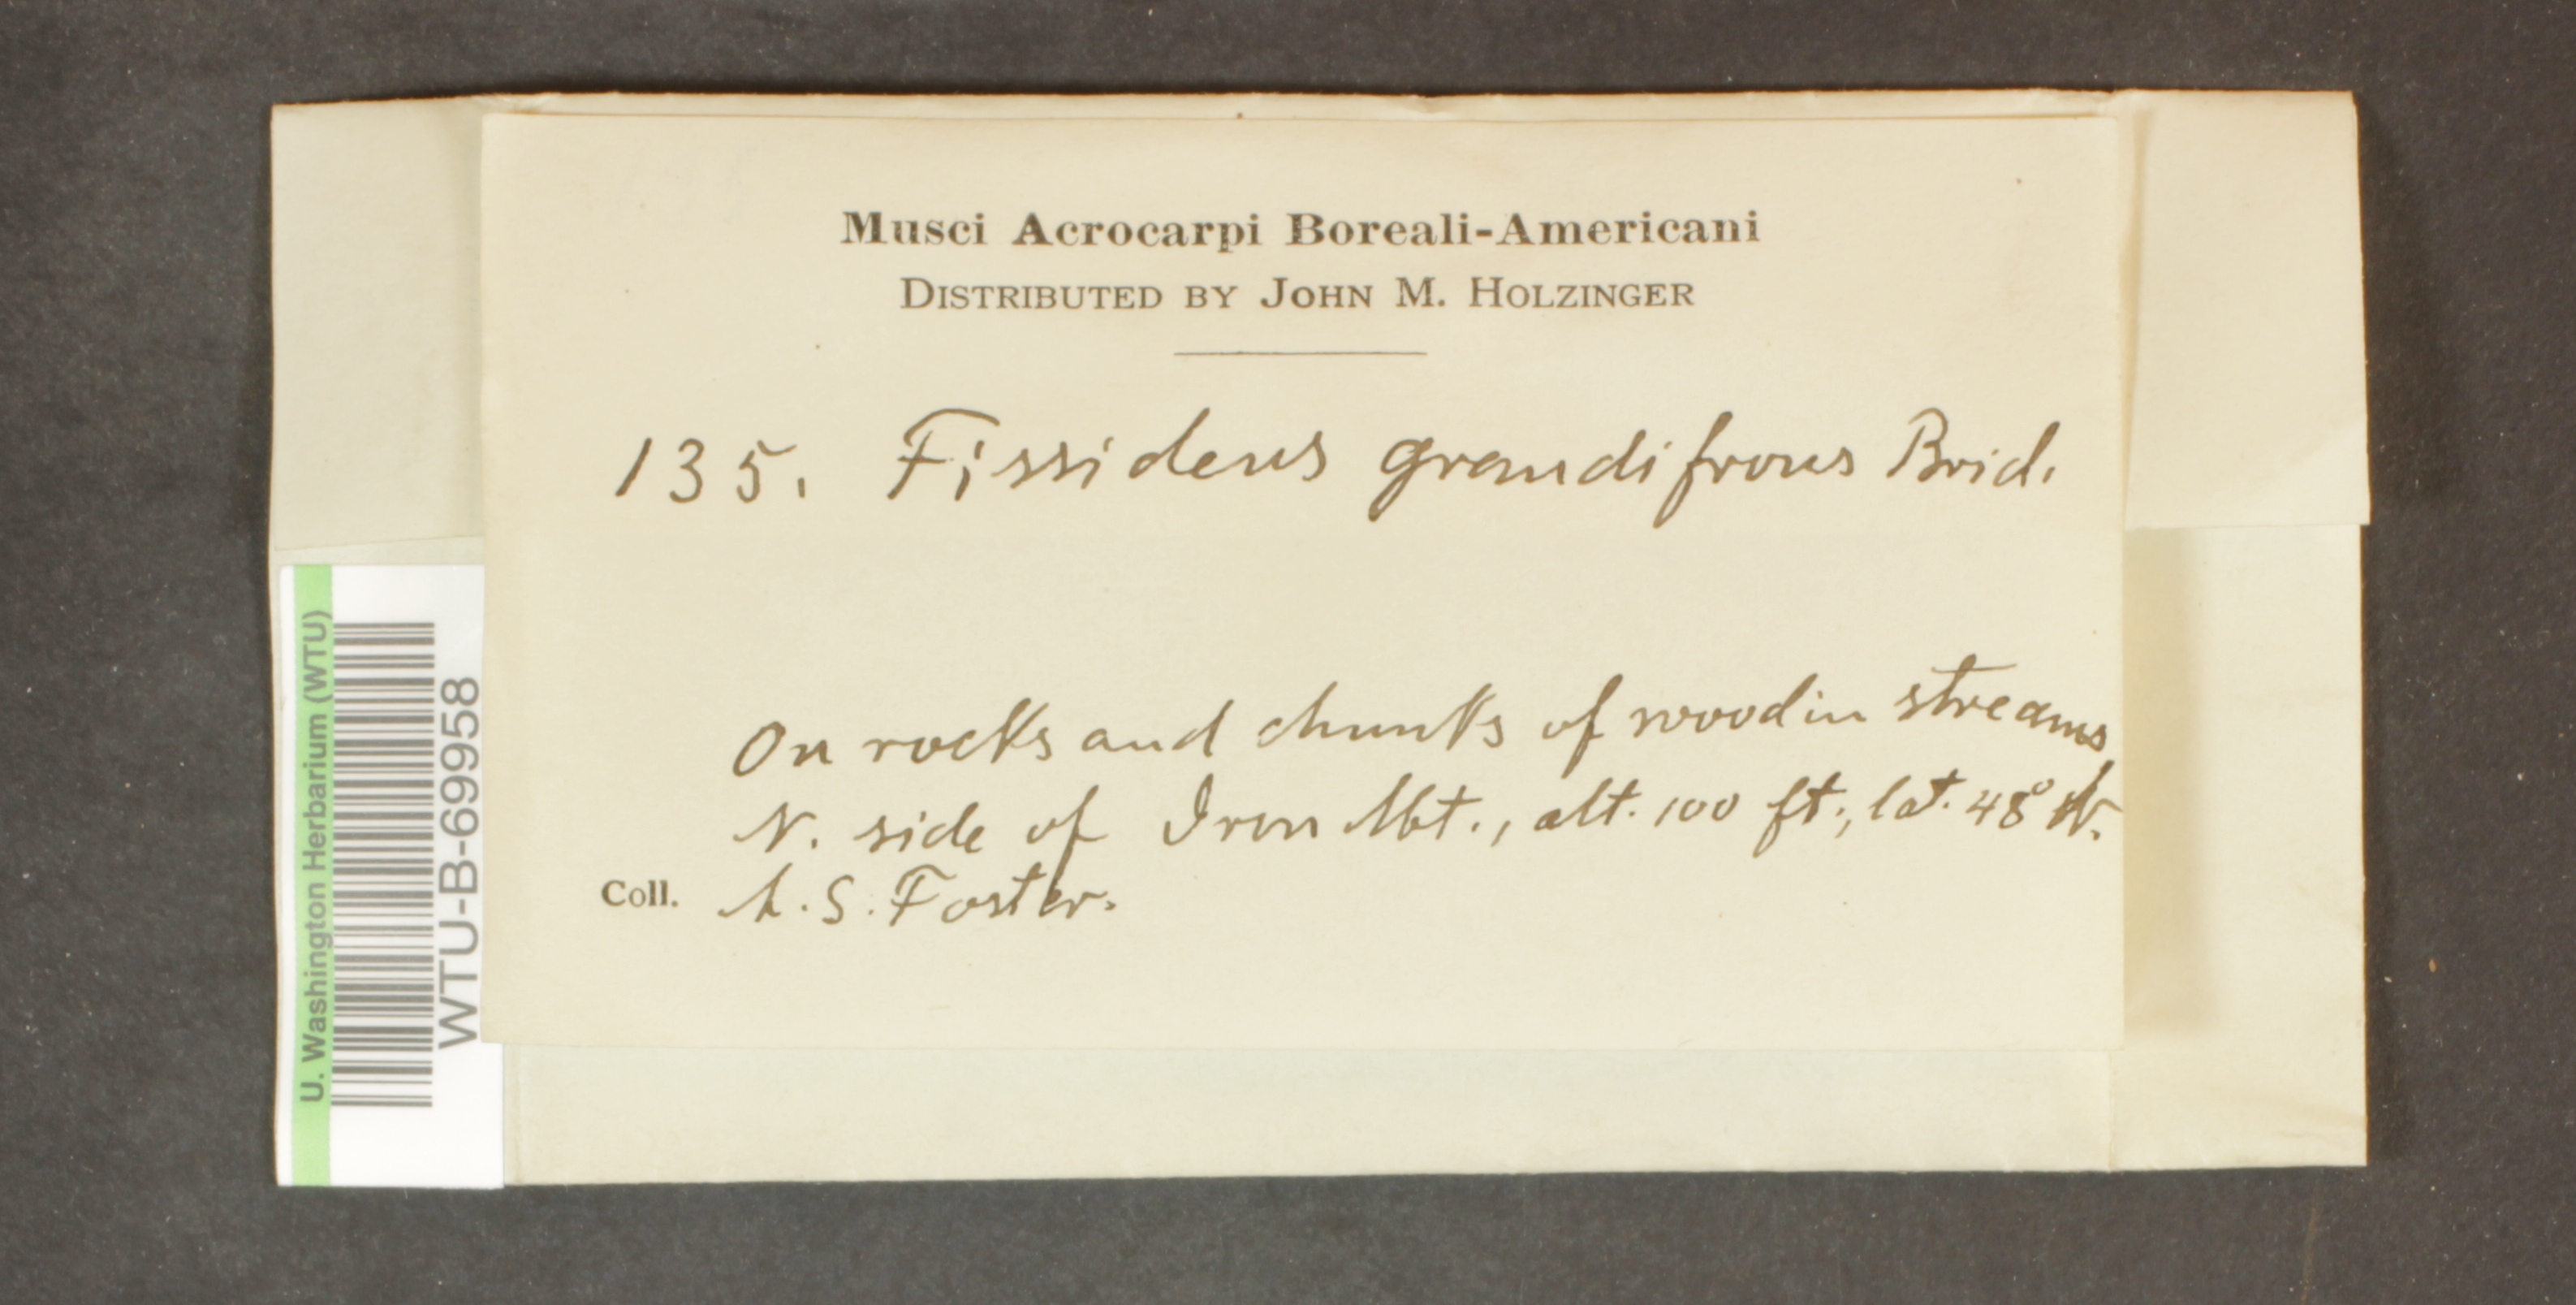 Musci Acrocarpi Boreali-Americani
DISTRIBUTED BY JOHN M. HOLZINGER
135. Fissidens grandifrons Brid.
On rocks and chunks of wood in streams
N. side of Iron Mt., alt. 100 ft., lat. 48° N.
Coll. A. S. Foster.
U. Washington Herbarium (WTU)
WTU-B-69958